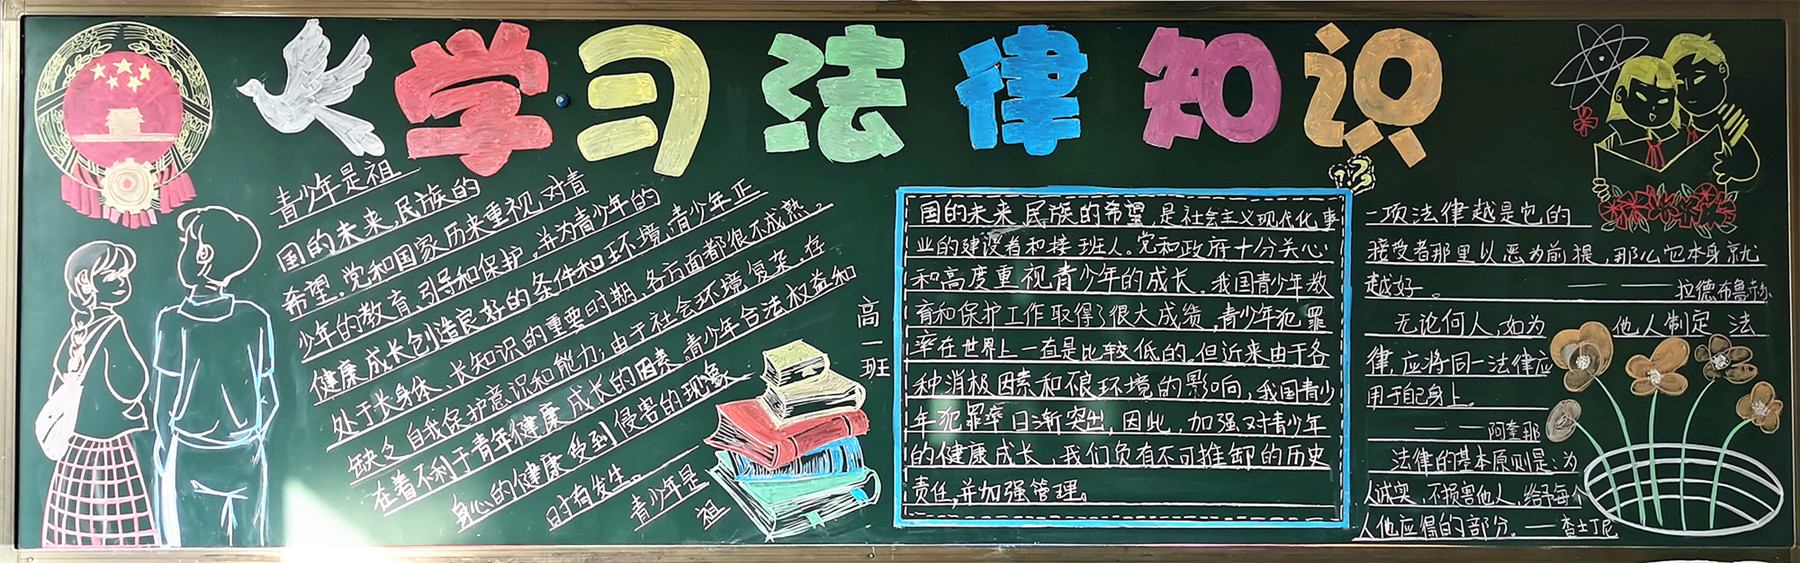 学习法律知识
青少年是祖
国的未来,民族的
希望。党和国家历来重视对青
少年的教育、引导和保护,并为青少年的
健康成长创造良好的条件和环境,青少年正
处于长身体、长知识的重要时期,各方面都很不成熟。
缺乏自我保护意识和能力,由于社会环境复杂,存
在着不利于青年健康成长的因素,青少年合法权益和
身心的健康受到侵害的现象
时有发生。
青少年是
祖
高一班
国的未来,民族的希望,是社会主义现代化事
业的建设者和接班人。党和政府十分关心
和高度重视青少年的成长。我国青少年教
育和保护工作取得了很大成绩,青少年犯罪
率在世界上一直是比较低的。但近来由于各
种消极因素和很环境的影响,我国青少
年犯罪率日渐突出,因此,加强对青少年
的健康成长,我们负有不可推卸的历史
责任,并加强管理。
一项法律越是它的
接受者那里以恶为前提,那么它本身就
越好。——拉德布鲁赤尔
无论何人,如为他人制定法
律,应将同一法律应
用于自己身上。
——阿奎那
法律的基本原则是:为
人诚实,不损害他人,给予每个
人他应得的部分。——查士丁尼